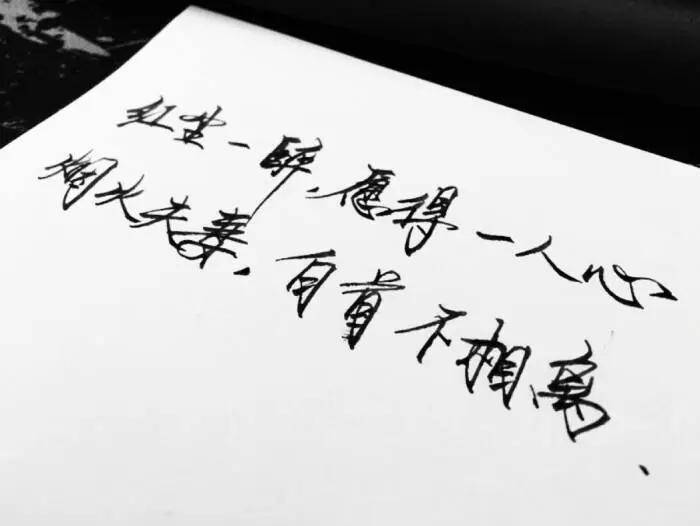 红尘一醉、愿得一人心
烟火夫妻、白首不相离、